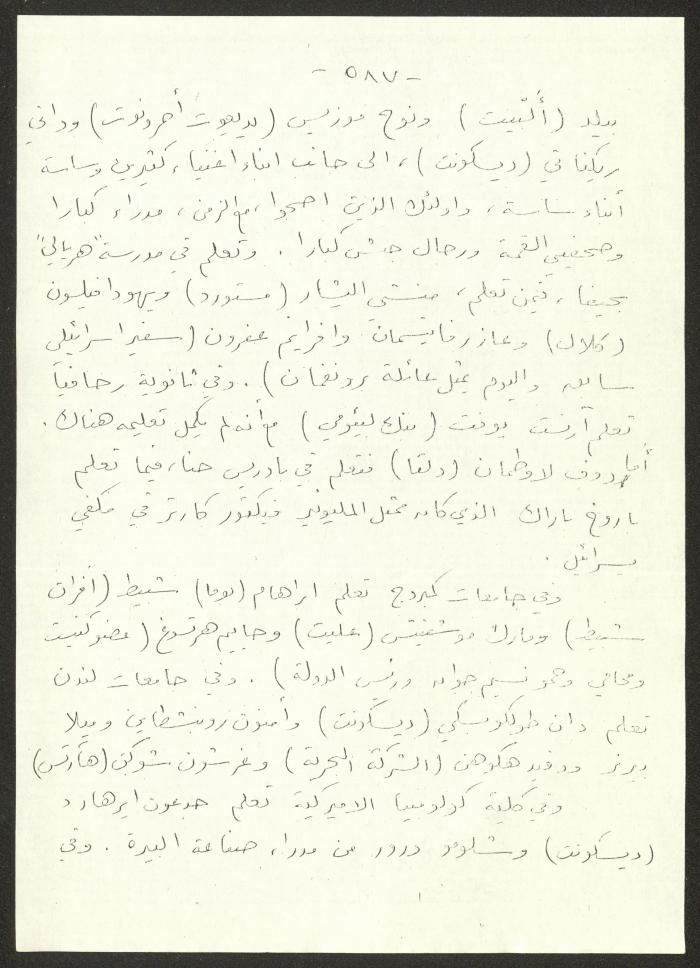 - ٥٨٧ -
بيلد (أُلْبيت) ونوح موزيس (يديعوت أحرونوت) وداني
ريكناتي (ديسكونت)، الى جانب ابناء اغنياء كثيرين وساسة
أبناء ساسة، واولئك الذين اصبحوا، مع الزمن، مدراء كبارا
وصحفيي القمة ورجال جيش كبارا. وتعلم في مدرسة "هريئالي"
بحيفا، فيمن تعلم، منشي اليشار (مستورد) ويهودا فيلسون
(كلال) وعازر فايتسمان وافرايم عفرون (سفير اسرائيلي
سابق واليوم يمثل عائلة برونفمان). وفي ثانوية رحافيا
تعلم آرنست يوفت (بنك ليئومي) مع أنه لم يكمل تعليمه هناك.
أما دوف لاوطمان (دلتا) فتعلم في بارديس حنا، فيما تعلم
باروخ باراك الذي كان ممثل المليونير فيكتور كارتر في مكفي
يسرائيل.
وفي جامعات كمبردج تعلم ابراهام (بوما) شبيط (افران
شبيط) ومارك موشفيتس (عليت) وحاييم هرتسوغ (عضو كنيست
ومحامي وحمو نسيم جوان ورئيس الدولة). وفي جامعات لندن
تعلم دان طولكوبسكي (ديسكونت) وأمنون روبنشطاين وهيلا
بيرنر ودفيد هكوهن (الشركة البحرية) وغرشون شوكن (هآرتس)
وفي كلية كولومبيا الاميركية تعلم جدعون ايرهارد
(ديسكونت) وشلومو درور من مدراء صناعة البيرة. وفي